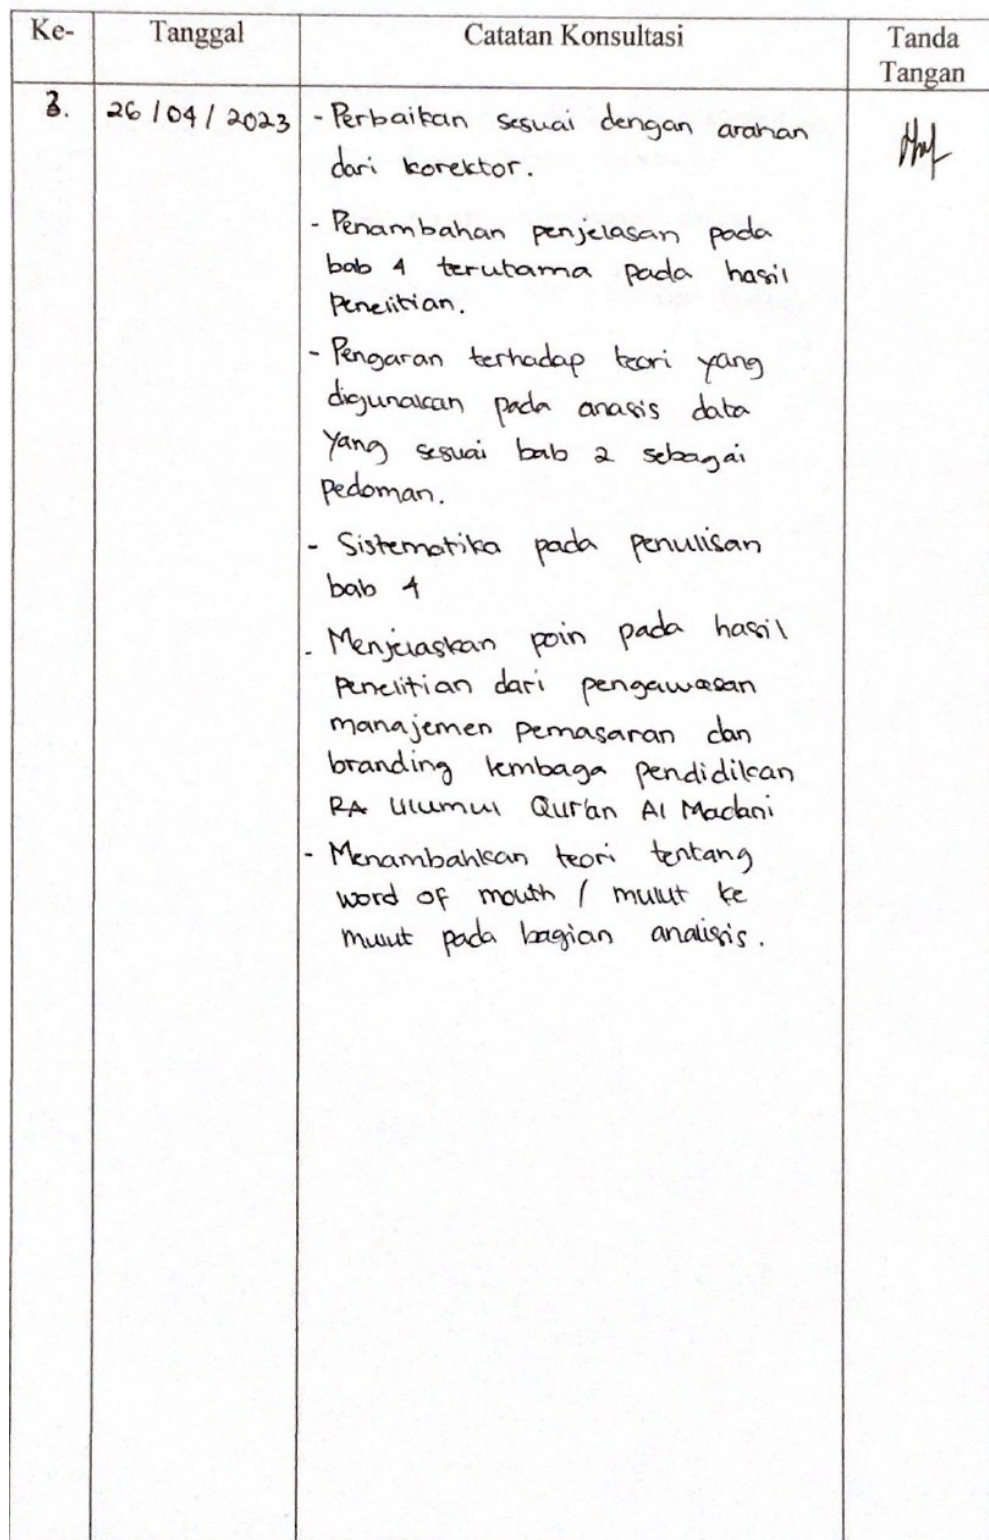 Ke- Tanggal Catatan Konsultasi Tanda
Tangan
3. 26/04/2023 - Perbaikan sesuai dengan arahan
dari korektor.
- Penambahan penjelasan pada
bab 4 terutama pada hasil
Penelitian.
- Pengaran terhadap teori yang
digunakan pada anasis data
yang sesuai bab 2 sebagai
pedoman.
- Sistematika pada penulisan
bab 4
- Menjelaskan poin pada hasil
Penelitian dari pengawasan
manajemen pemasaran dan
branding lembaga pendidikan
RA Ulumul Qur'an Al Madani
- Menambahkan teori tentang
word of mouth / mulut ke
mulut pada bagian analisis.